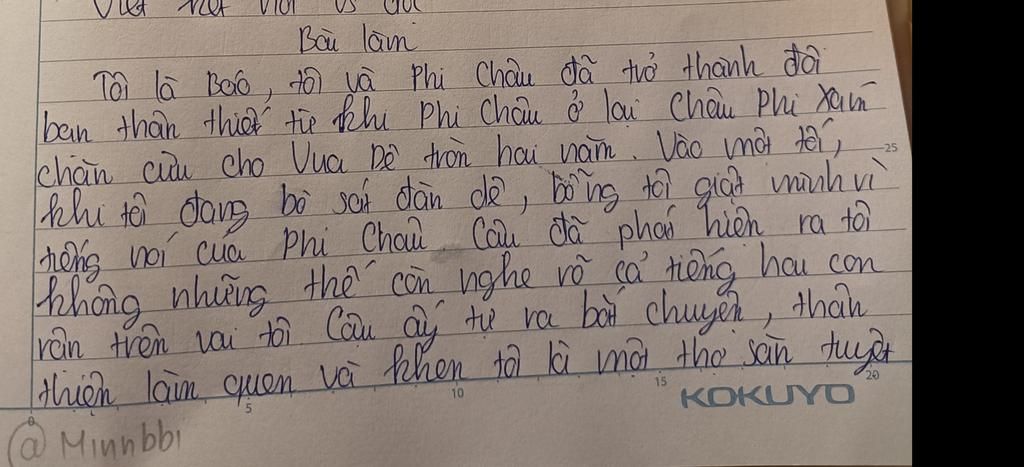 Viết kết nối vs đọc
Bài làm
Tôi là Báo, tôi và Phi Châu đã trở thành đôi
bạn thân thiết từ khi Phi Châu ở lại Châu Phi xanh
chăn cừu cho Vua Dê tròn hai năm. Vào một tối, 25
khi tôi đang bò sát đàn dê, bỗng tôi giật mình vì
tiếng nói của Phi Châu. Cậu đã phát hiện ra tôi
không những thế còn nghe rõ cả tiếng hai con
rắn trên vai tôi. Cậu ấy tự ra bắt chuyện, thân
thiện làm quen và khen tôi là một thợ săn tuyệt
0 5 10 15 20
KOKUYO
@Minnbbi